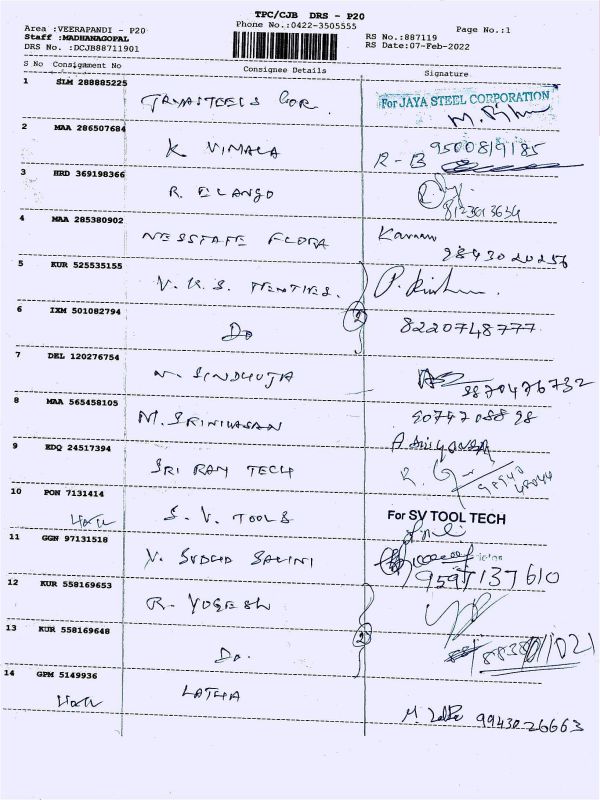 TPC/CJB DRS - P20
Area :VEERAPANDI - P20 Phone No.:0422-3505555 Page No.:1
Staff :MADHANAGOPAL RS No.:887119
DRS No. :DCJB88711901 RS Date:07-Feb-2022
S No Consignment No Consignee Details Signature
1 SLM 288885225 For JAYA STEEL CORPORATION
2 MAA 286507684 K VIMALA R-B 9500819185
3 HRD 369198366 R. ELANGO 8123013634
4 MAA 285380902 FLORA 9843020256
5 KUR 525535155 V.K.S.
6 IXM 501082794 Do 2 8220748777
7 DEL 120276754 N. SINDHUJA 9870476732
8 MAA 565458105 M. SRINIVASAN
9 EDQ 24517394 SRI RAM TECH R.
10 PON 7131414 S. V. TOOLS For SV TOOL TECH
11 GGN 97131518 V. SUDHA SALINI 9597137610
12 KUR 558169653 R. YOGESH
13 KUR 558169648 Do. 2
14 GPM 5149936 LATHA M 9943026663